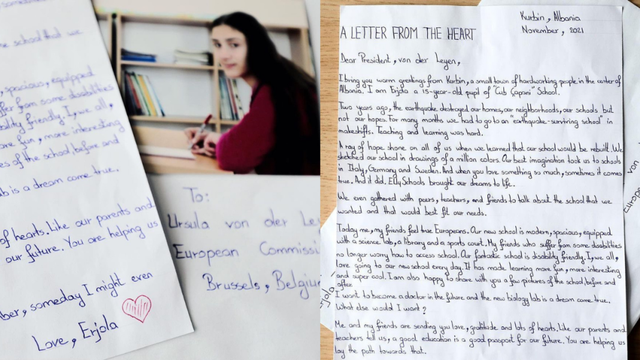 the school that we
, spacious, equipped
ffer from some disabilities
ability friendly. I, we, all,
fun, more interesting
es of the school before and
is a dream come true.
of hearts. Like our parents and
our future. You are helping us
ber, someday I might even
Love, Erjola
To:
Ursula von der Le
European Commiss
Brussels, Belgiu
Kurbin, Albania
November, 2021
A LETTER FROM THE HEART
Dear President, von der Leyen,
I bring you warm greetings from Kurbin, a small town of hardworking people in the center of
Albania. I am Erjola a 15-year-old pupil of School.
Two years ago, the earthquake destroyed our homes, our neighborhoods, our schools but
not our hopes. For many months we had to go to an "earthquake-surviving school" in
makeshifts. Teaching and learning was hard.
A ray of hope shone on all of us when we learned that our school would be rebuilt. We
sketched our school in drawings of a million colors. Our best imagination took us to schools
in Italy, Germany and Sweden. And when you love something so much, sometimes it comes
true. And it did. EU4Schools brought our dreams to life.
We even gathered with peers, teachers, and friends to talk about the school that we
wanted and that would best fit our needs.
Today me, my friends feel true Europeans. Our new school is modern, spacious, equipped
with a science lab, a library and a sports court. My friends who suffer from some disabilities
no longer worry how to access school. Our fantastic school is disability friendly. I, we, all,
love going to our new school every day. It has made learning more fun, more interesting
and super cool. I am also happy to share with you a few pictures of the school before and
after.
I want to become a doctor in the future and the new biology lab is a dream come true.
What else would I want?
Me and my friends are sending you love, gratitude and lots of hearts. Like our parents and
teachers tell us, a good education is a good passport for our future. You are helping us
lay the path towards that.